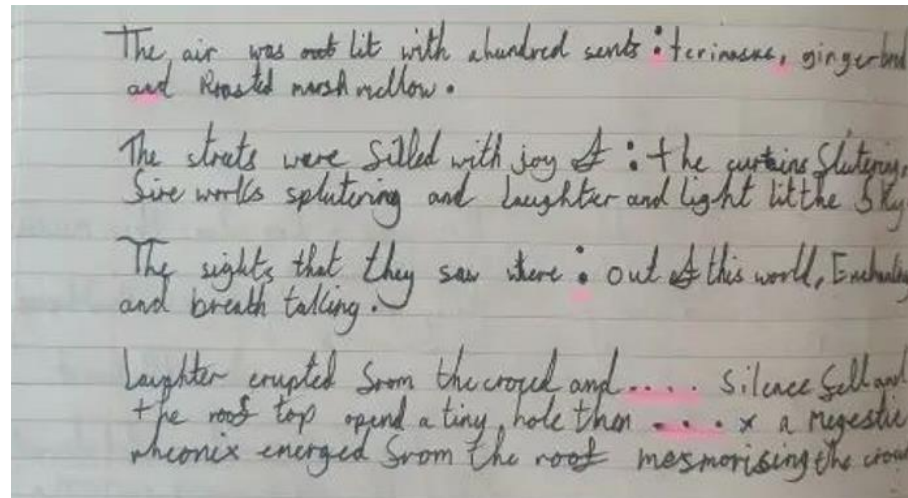 The air was lit with a hundred sents : terinaske, gingerbred
and Roasted marsh mellow.
The streets were filled with joy : the curtains flutering,
fire works splutering and laughter and light lit the Sky
The sights that they saw where : out of this world, Enchanting
and breath talking.
Laughter erupted from the crowd and .... silence fell and
the roof top opend a tiny hole then .... x a megestic
pheonix emerged from the roof mesmorising the crowd